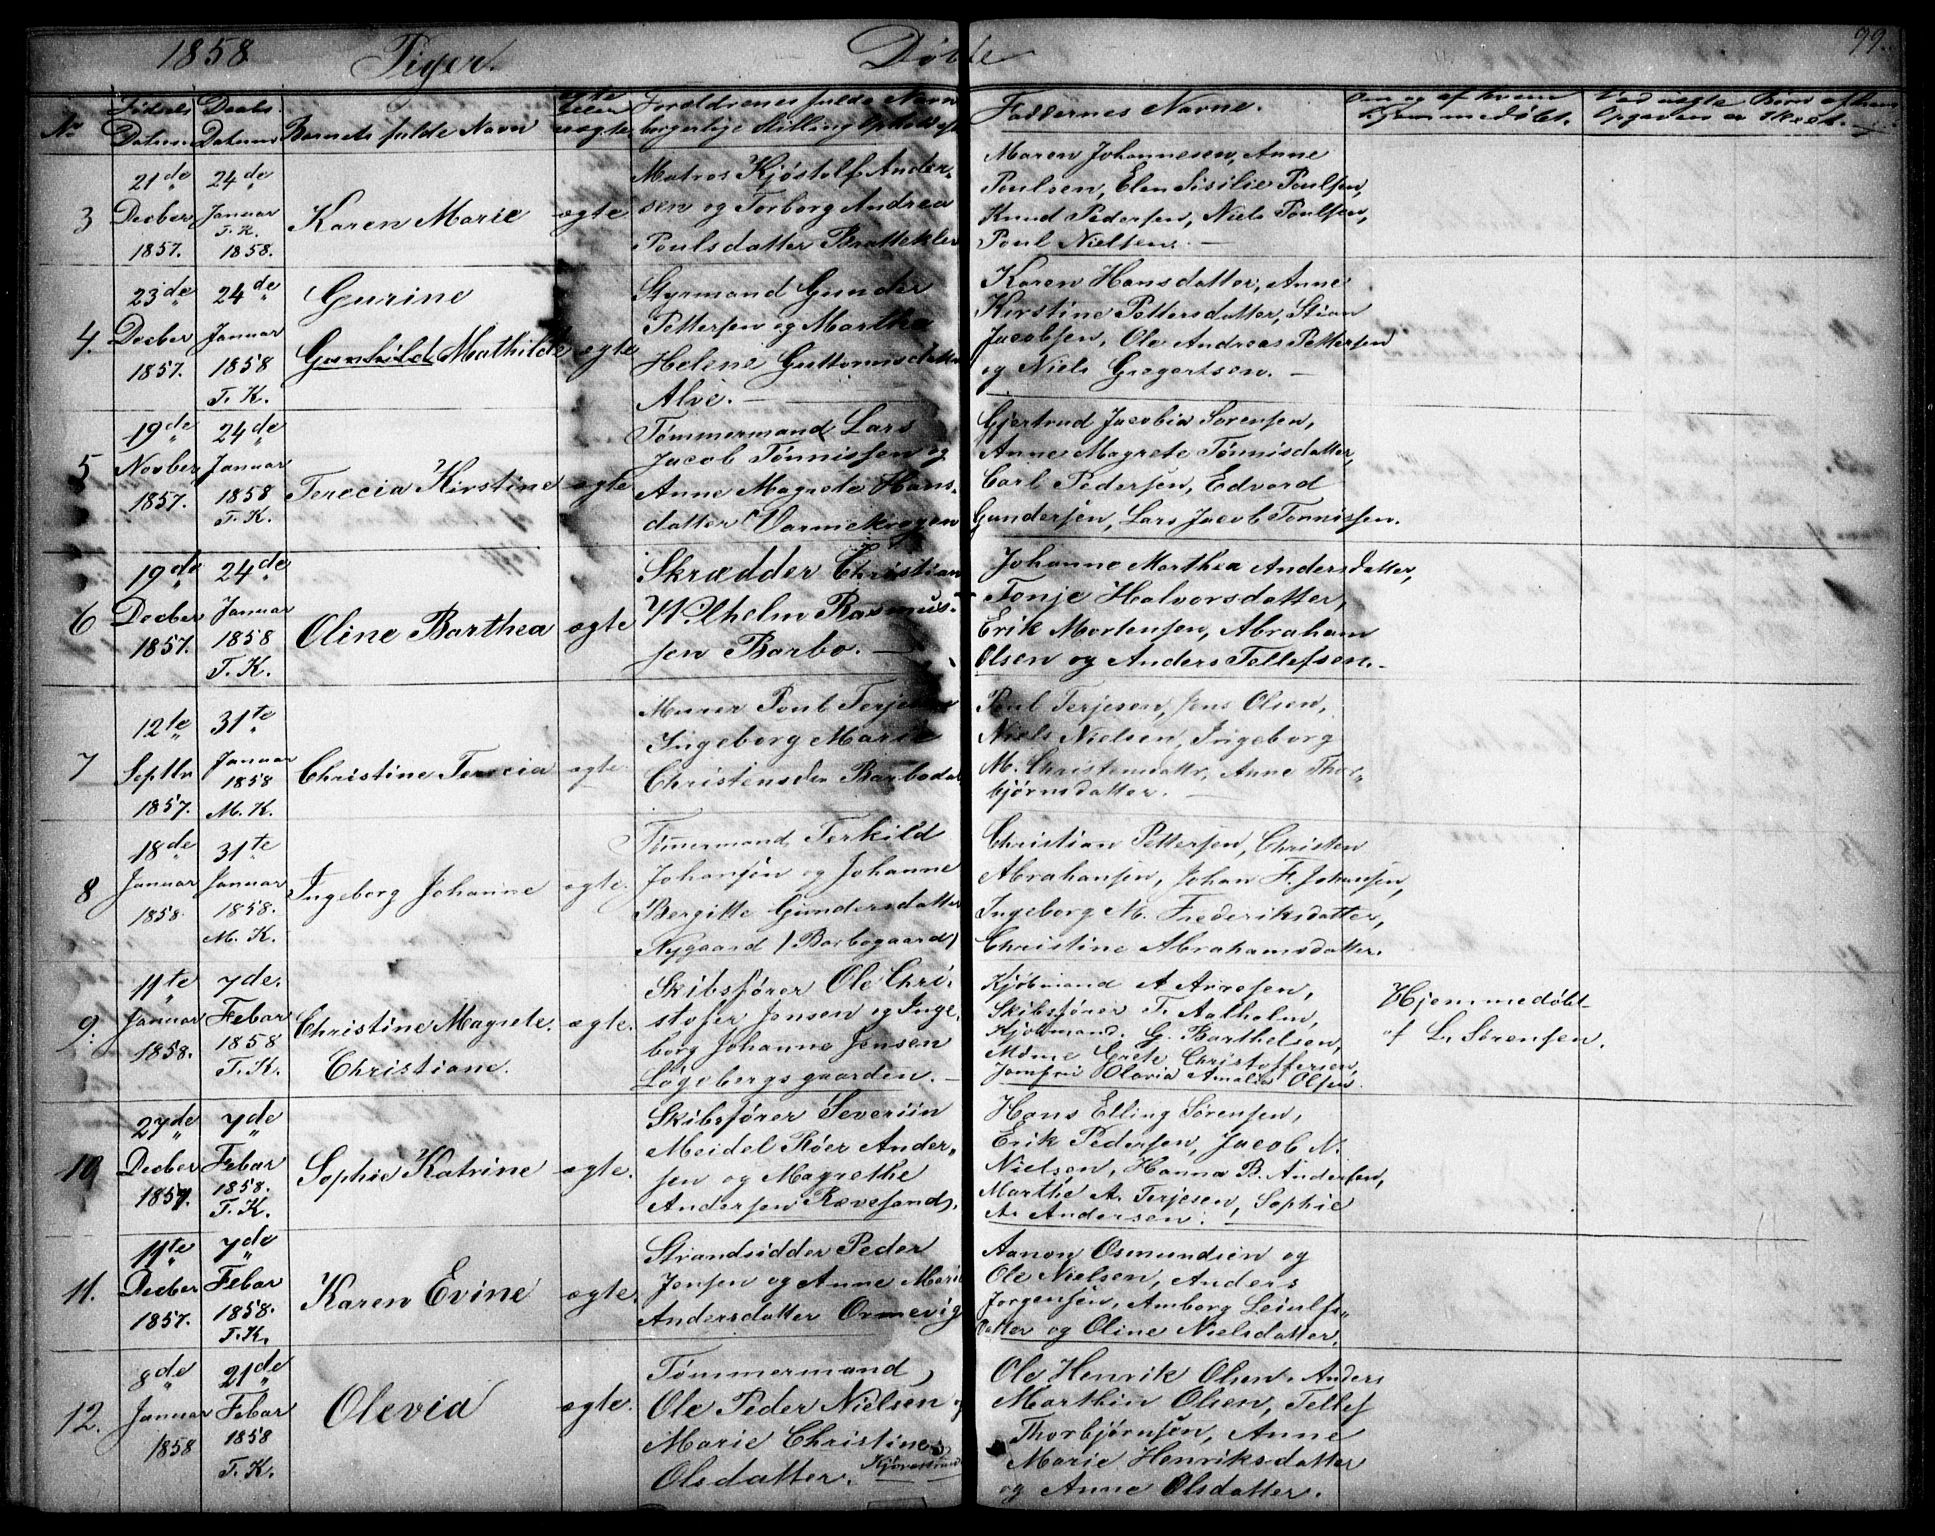 1858 Piger. Døbte 99.
No Fødsels Datum Daabs Datum Barnets fulde Navn ægte eller uægte Forældrenes fulde Navn borgerlige Stilling Opholdst. Faddernes Navne. Om og af hvem hjemmedøbt. Ved uægte Børn
Opgaven er skeet.
3
21de Decber 1857.
24de Januar T. K. 1858.
Karen Marie
ægte
Matros Kjøstolf Ander-
sen og Torborg Andrea
Poulsdatter Brattekler
Maren Johannesen, Anne
Poulsen, Elen Sisilie Poulsen,
Knud Pedersen, Niels Poulsen,
Poul Nielsen. —
4.
23de Decber 1857.
24de Januar 1858 T. K.
Gurine
Gunhild Mathilde
ægte
Styrmand Gunder
Pettersen og Marthe
Helene Guttormsdatter
Alve. —
Karen Hansdatter, Anne
Kirstine Pettersdatter, Stian
Jacobsen, Ole Andreas Pettersen
og Niels Gregertsen. —
5
19de Novber 1857.
24de Januar 1858 T. K.
Terecia Kirstine
ægte
Tømmermand Lars
Jacob Tønnissen og
Anne Magrete Hans-
datter Varmekrogen
Gjertrud Jacobia Sørensen,
Anne Magrete Tønnisdatter,
Carl Pedersen, Edvard
Gundersen, Lars Jacob Tønnissen.
6
19de Decber 1857.
24de Januar 1858 T. K.
Oline Barthea
ægte
Skrædder Christian
Wilhelm Rasmus-
sen Barbo. —
Johanne Marthea Andersdatter,
Tonje Halvorsdatter,
Erik Mortensen, Abraham
Olsen og Anders Tellefsen. —
7
12te Septbr 1857.
31te Januar 1858 M. K.
Christine Terecia
ægte
Murer Poul Terjesen
Ingeborg Marie
Christensdtr Barbodal
Poul Terjesen, Jens Olsen,
Niels Nielsen, Ingeborg
M. Christensdattr, Anne Thor-
bjørnsdatter. —
8
18de Januar 1858.
31te Januar 1858. M. K.
Ingeborg Johanne
ægte.
Tømmermand Terkild
Johansen og Johanne
Bergitte Gundersdatter
Nygaard (Barbogaard)
Christian Pettersen, Christen
Abrahansen, Johan F. Johansen,
Ingeborg M. Frederiksdatter,
Christine Abrahamsdatter.
9.
11te Januar 1858.
7de. Febar 1858 T. K.
Christine Magrete.
Christiane.
ægte.
Skibsfører Ole Chri-
stofer Jensen og Inge-
borg Johanne Jensen
Løgebergsgaarden. —
Kjøbmand A Arvesen,
Skibsfører T. Aalholm,
Kjøbmand. G. Barthelsen,
Mdme Grete Christoffersen,
Jomfru Olavia Amalia Olsen
Hjemmedøbt
af L. Sørensen.
10
27de Decber 1857.
7de Febar 1858. T. K.
Sophie Katrine
ægte.
Skibsfører Severiin
Meidel Røer Ander-
sen og Magrethe
Andersen Revesand.
Hans Elling Sørensen,
Erik Pedersen, Jacob N.
Nielsen, Hanna B. Andersen,
Marthe A. Terjesen, Sophie
A. Andersen.
11.
11te Decber 1857.
7de Febar 1858. T. K.
Karen Evine
ægte.
Strandsidder Peder
Jensen og Anne Marie
Andersdatter Ormevig
Aanon Osmundsen og
Ole Nielsen, Anders
Jørgensen, Amborg Leiulfs-
datter og Oline Nielsdatter.
12.
8de Januar 1858
21de Febar 1858 T. K.
Olevia
ægte.
Tømmermand
Ole Peder Nielsen og
Marie Christine
Olsdatter.
Ole Henrik Olsen, Anders
Marthin Olsen, Tellef
Thorbjørnsen, Anne
Marie Henriksdatter
og Anne Olsdatter.